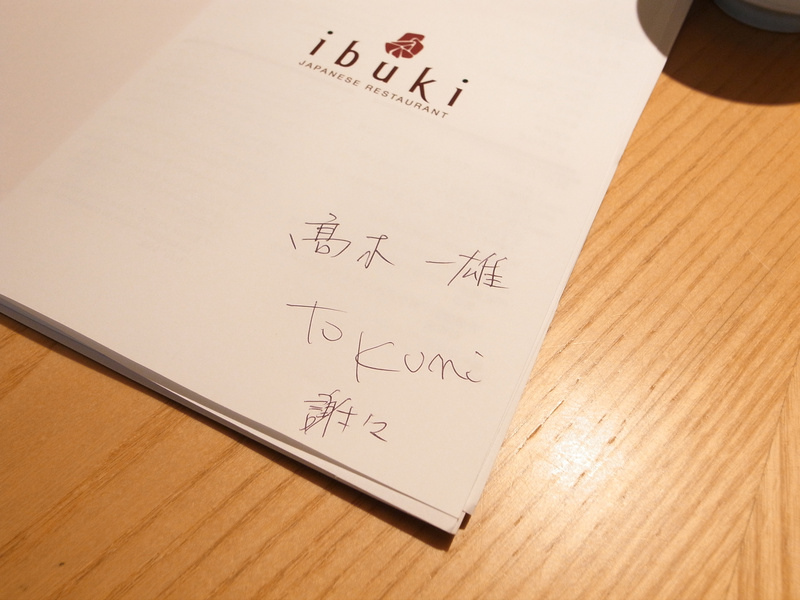 ibuki
JAPANESE RESTAURANT
髙木 一雄
To
Kuni
謝謝